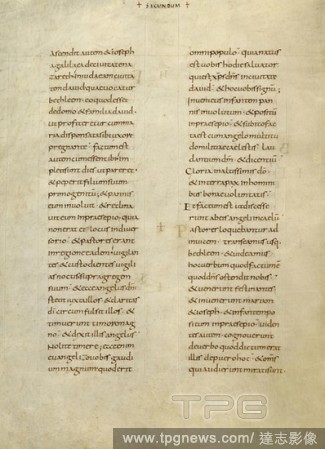 + SECUNDUM +
Ascendit autem & ioseph
a galilaea de ciuitate na
zareth in iudaeam ciuita
tem dauid quae uocatur
bethleem eo quod esset
de domo & familia dauid
ut profiteretur cum ma
ria desponsata sibi uxore
pregnante factum est
autem cum essent ibi im
pleti sunt dies ut pareret
& peperit filium suum
primogenitum & pannis
eum inuoluit & reclina
uit eum in praesepio quia
non erat eis locus in diuer
sorio & pastores erant
in regione eadem uigilan
tes & custodientes uigili
as noctis supra gregem
suum & ecce angelus dni
stetit iuxta illos & claritas
di circumfulsit illos &
timuerunt timore mag
no & dixit illis angelus
Nolite timere ecce enim
euangelizo uobis gaudi
um magnum quod erit
omni populo quia natus
est uobis hodie saluator
qui est xps dns in ciuitate
dauid & hoc uobis signum
Inuenietis infantem pan
nis inuolutum & positum
in praesepio & subito fac
ta est cum angelo multitu
do militiae caelestis lau
dantium dm & dicentium
Gloria in altissimis do
& in terra pax in homini
bus bonae uoluntatis
Et factum est ut discesse
runt ab eis angeli in caelum
Pastores loquebantur ad
inuicem transeamus usq;
bethleem & uideamus
hoc uerbum quod factum est
quod dns ostendit nobis
& uenerunt festinantes
& inuenerunt mariam
& ioseph & infantem po
situm in praesepio uiden
tes autem cognouerunt
de uerbo quod dictum erat
illis de puero hoc & omnes
qui audierunt mirati sunt
TPG
www.tpgnews.com / 達志影像